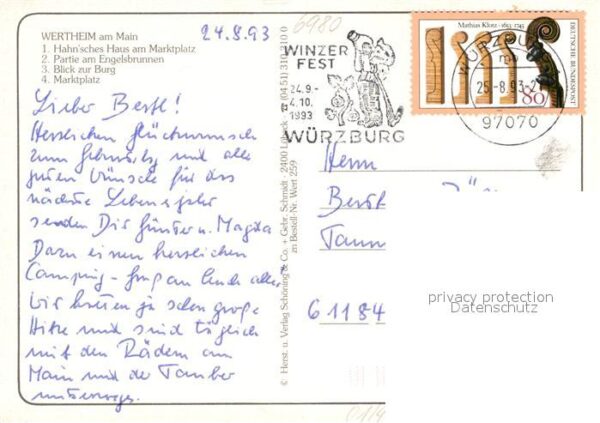 WERTHEIM am Main
1. Hahn'sches Haus am Marktplatz
2. Partie am Engelsbrunnen
3. Blick zur Burg
4. Marktplatz
24.8.93
Lieber Bertl!
Herzlichen Glückwunsch
zum Geburtstag und alle
guten Wünsche für das
nächste Lebensjahr
senden Dir Günter u. Magda
Dazu einen herzlichen
Camping-
Wir hatten ja schon große
Hitze und sind täglich
mit den Rädern am
Main und der Tauber
unterwegs.
© Herst. u. Verlag Schöning & Co. + Gebr. Schmidt · 2400 Lübeck · (04 51) 310 310 0
zn Bestell-Nr. Wert 259
6980
WINZER
FEST
24.9.-
4.10.
1993
WÜRZBURG
WÜRZBURG
25.-8.93-21
97070
Mathias Klotz · 1653-1743
DEUTSCHE BUNDESPOST
80
Herrn
61184
privacy protection
Datenschutz